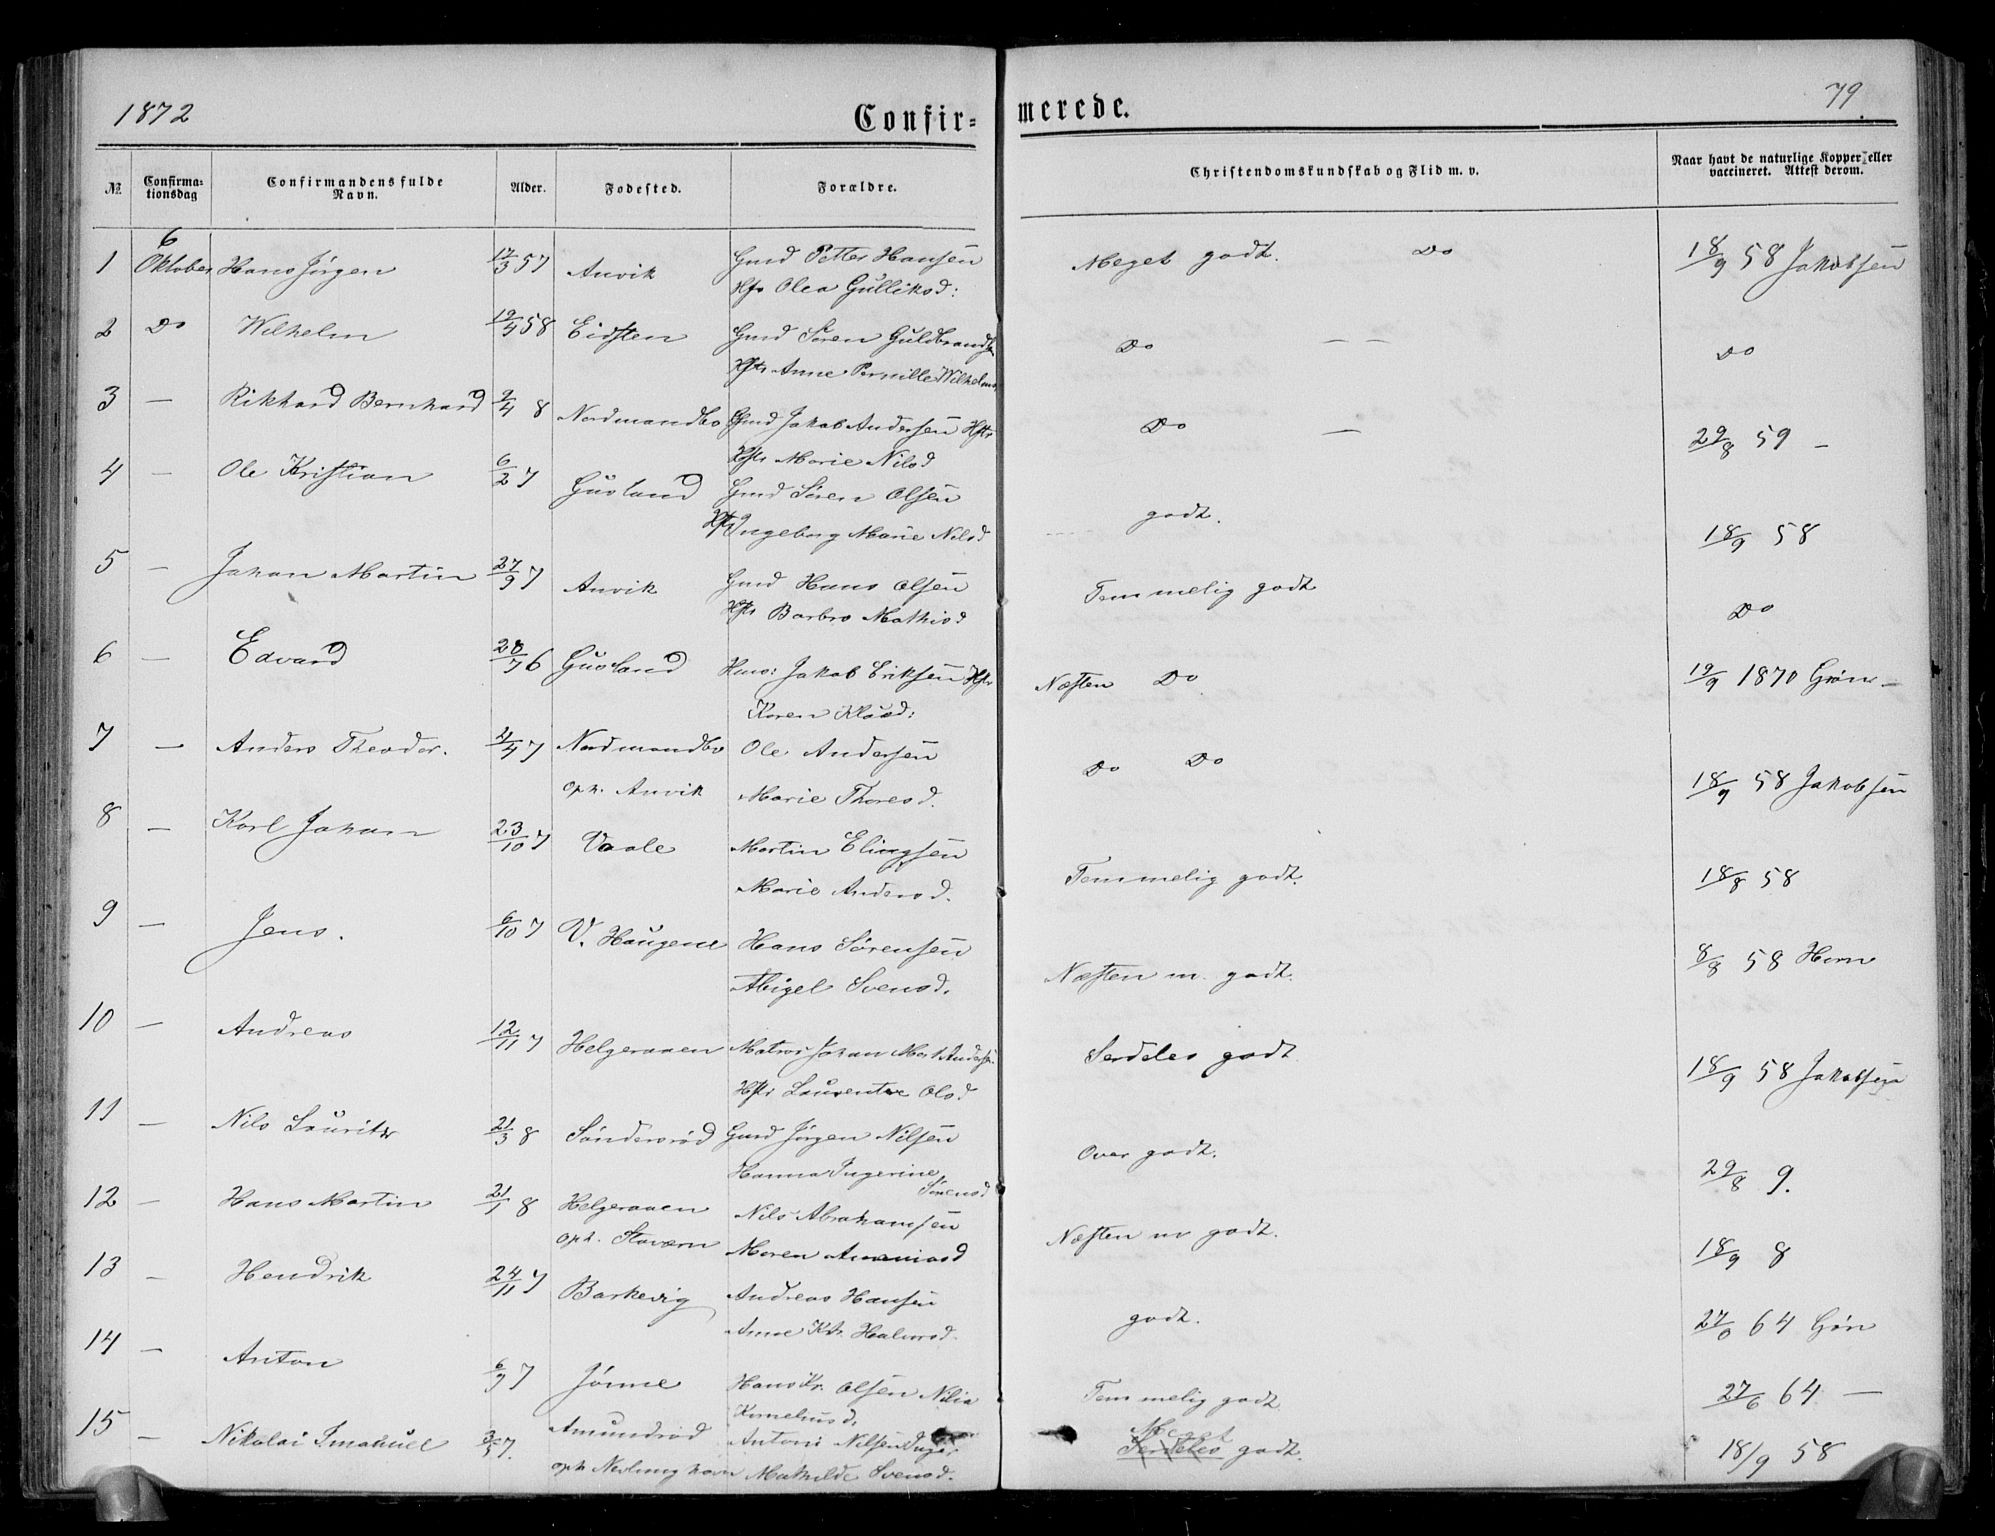 1872
Confir-
merede.
79.
№ Confirma-
tionsdag Confirmandens fulde
Navn. Alder. Fødested. Forældre. Christendomskundskab og Flid m. v. Naar havt de naturlige Kopper eller
vaccineret. Attest derom.
1 6 Oktober Hans Jörgen 17/3 57 Anvik Gmd Petter Hansen Meget godt. Do 18/9 58 Jakobsen
Hfr Olea Gulliksd:
2 Do Wilhelm 19/4 58 Eidsten Gmd Sören Guldbrands Do — — Do
Hfr Anne Pernille Wilhelms
3 — Rikhard Bernhard 9/4 8 Nordmandbo Gmd Jakob Andersen Hfr Do — 29/8 59 —
Hfr Marie Nilsd
4 — Ole Kristian 6/2 7 Gusland Gmd Sören Olsen godt. 18/9 58
Hfr Ingeborg Marie Nilsd
5 — Johan Martin 27/9 7 Anvik Gmd Hans Olsen Temmelig godt Do
Hfr Barbro Mathisd
6 — Edvard 28/7 6 Gusland Huus: Jakob Eriksen Hfr Næsten Do 19/9 1870 Grön —
Karen Klausd:
7 — Anders Theodor. 4/4 7 Nordmandbo Ole Andersen Do Do 18/9 58 Jakobsen
oph. Anvik Marie Thoresd.
8 — Karl Johan 23/10 7 Vaale Martin Elingsen Temmelig godt. 18/8 58
Marie Andersd.
9 — Jens. 6/10 7 V. Haugene Hans Sörensen Næsten m. godt. 8/8 58 Horn
Abigel Svensd.
10 — Andreas 12/11 7 Helgeraaen Matros Johan Mart Andersen Serdeles godt 18/9 58 Jakobsen
Hfr Laurentze Olsd
11 — Nils Lauritz 21/3 8 Söndersröd Gmd Jörgen Nilsen Over godt. 29/8 9.
Hanna Ingerine
Sörensd
12 — Hans Martin 21/1 8 Helgeraaen Nils Abrahamsen Næsten m godt. 18/9 8
oph. Stavern Maren Ananiasd
13 — Hendrik 24/11 7 Barkevig Andreas Hansen godt. 27/6 64 Grön
Anne Kr. Halvorsd.
14 — Anton 6/9 7 Jönne Hans Kr. Olsen Nilia Temmelig godt 27/6 64 —
Korneliusd.
15 — Nikolai Imanuel 3/5 7. Amundröd Antoni Nilsen Inger Meget
Serdeles godt. 18/9 58
oph Nevlunghavn Mathilde Svensd.